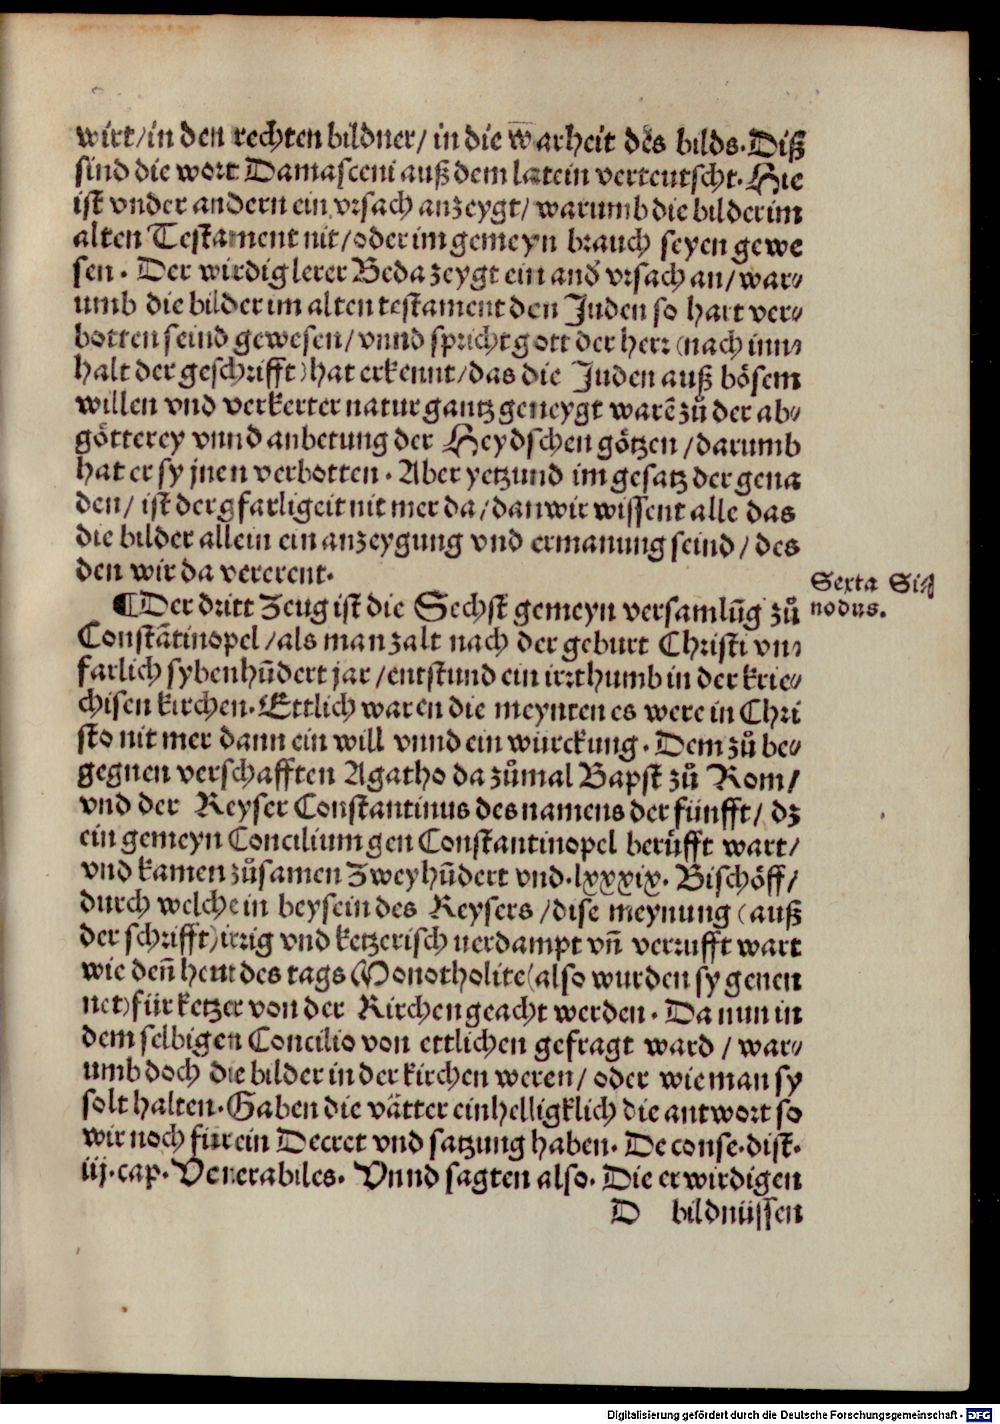 wirt/in den rechten bildner/ in die warheit des bilds. Diß
sind die wort Damasceni auß dem latein verteutscht. Hie
ist vnder andern ein vrsach anzeygt/ warumb die bilder im
alten Testament nit/oder im gemeyn brauch seyen gewe
sen. Der wirdig lerer Beda zeygt ein and̓ vrsach an/ war⸗
umb die bilder im alten testament den Juden so hart ver⸗
botten seind gewesen/ vnnd spricht gott der herr (nach inn⸗
halt der geschrifft) hat erkennt/das die Juden auß bösem
willen vnd verkerter natur gantz geneygt warē zů der ab⸗
götterey vnnd anbetung der Heydschen götzen/darumb
hat er sy jnen verbotten. Aber yetzund im gesatz der gena
den/ ist der gfarligeit nit mer da/dan wir wissent alle das
die bilder allein ein anzeygung vnd ermanung seind/ des
den wir da vererent.
Sexta Si⸗
nodus.
¶Der dritt Zeug ist die Sechst gemeyn versamlūg zů
Constātinopel/als man zalt nach der geburt Christi vn⸗
farlich sybenhūdert jar/entstund ein irrthumb in der krie⸗
chisen kirchen. Ettlich waren die meynten es were in Chri
sto nit mer dann ein will vnnd ein würckung. Dem zů be⸗
gegnen verschafften Agatho da zůmal Bapst zů Rom/
vnd der Keyser Constantinus des namens der fünfft/ dz
ein gemeyn Concilium gen Constantinopel berüfft wart/
vnd kamen zůsamen Zweyhūdert vnd. lxxxix. Bischöff/
durch welche in beysein des Keysers/dise meynung (auß
der schrifft) irrig vnd ketzerisch uerdampt vñ verrufft wart
wie deñ heut des tags Monotholite (also wurden sy genen
net) für ketzer von der Kirchen geacht werden. Da nun in
dem selbigen Concilio von ettlichen gefragt ward/ war⸗
umb doch die bilder in der kirchen weren/ oder wie man sy
solt halten. Gaben die vätter einhelligklich die antwort so
wir noch für ein Decret vnd satzung haben. De conse. dist.
iij. cap. Venerabiles. Vnnd sagten also. Die erwirdigen
D bildnüssen
Digitalisierung gefördert durch die Deutsche Forschungsgemeinschaft - DFG